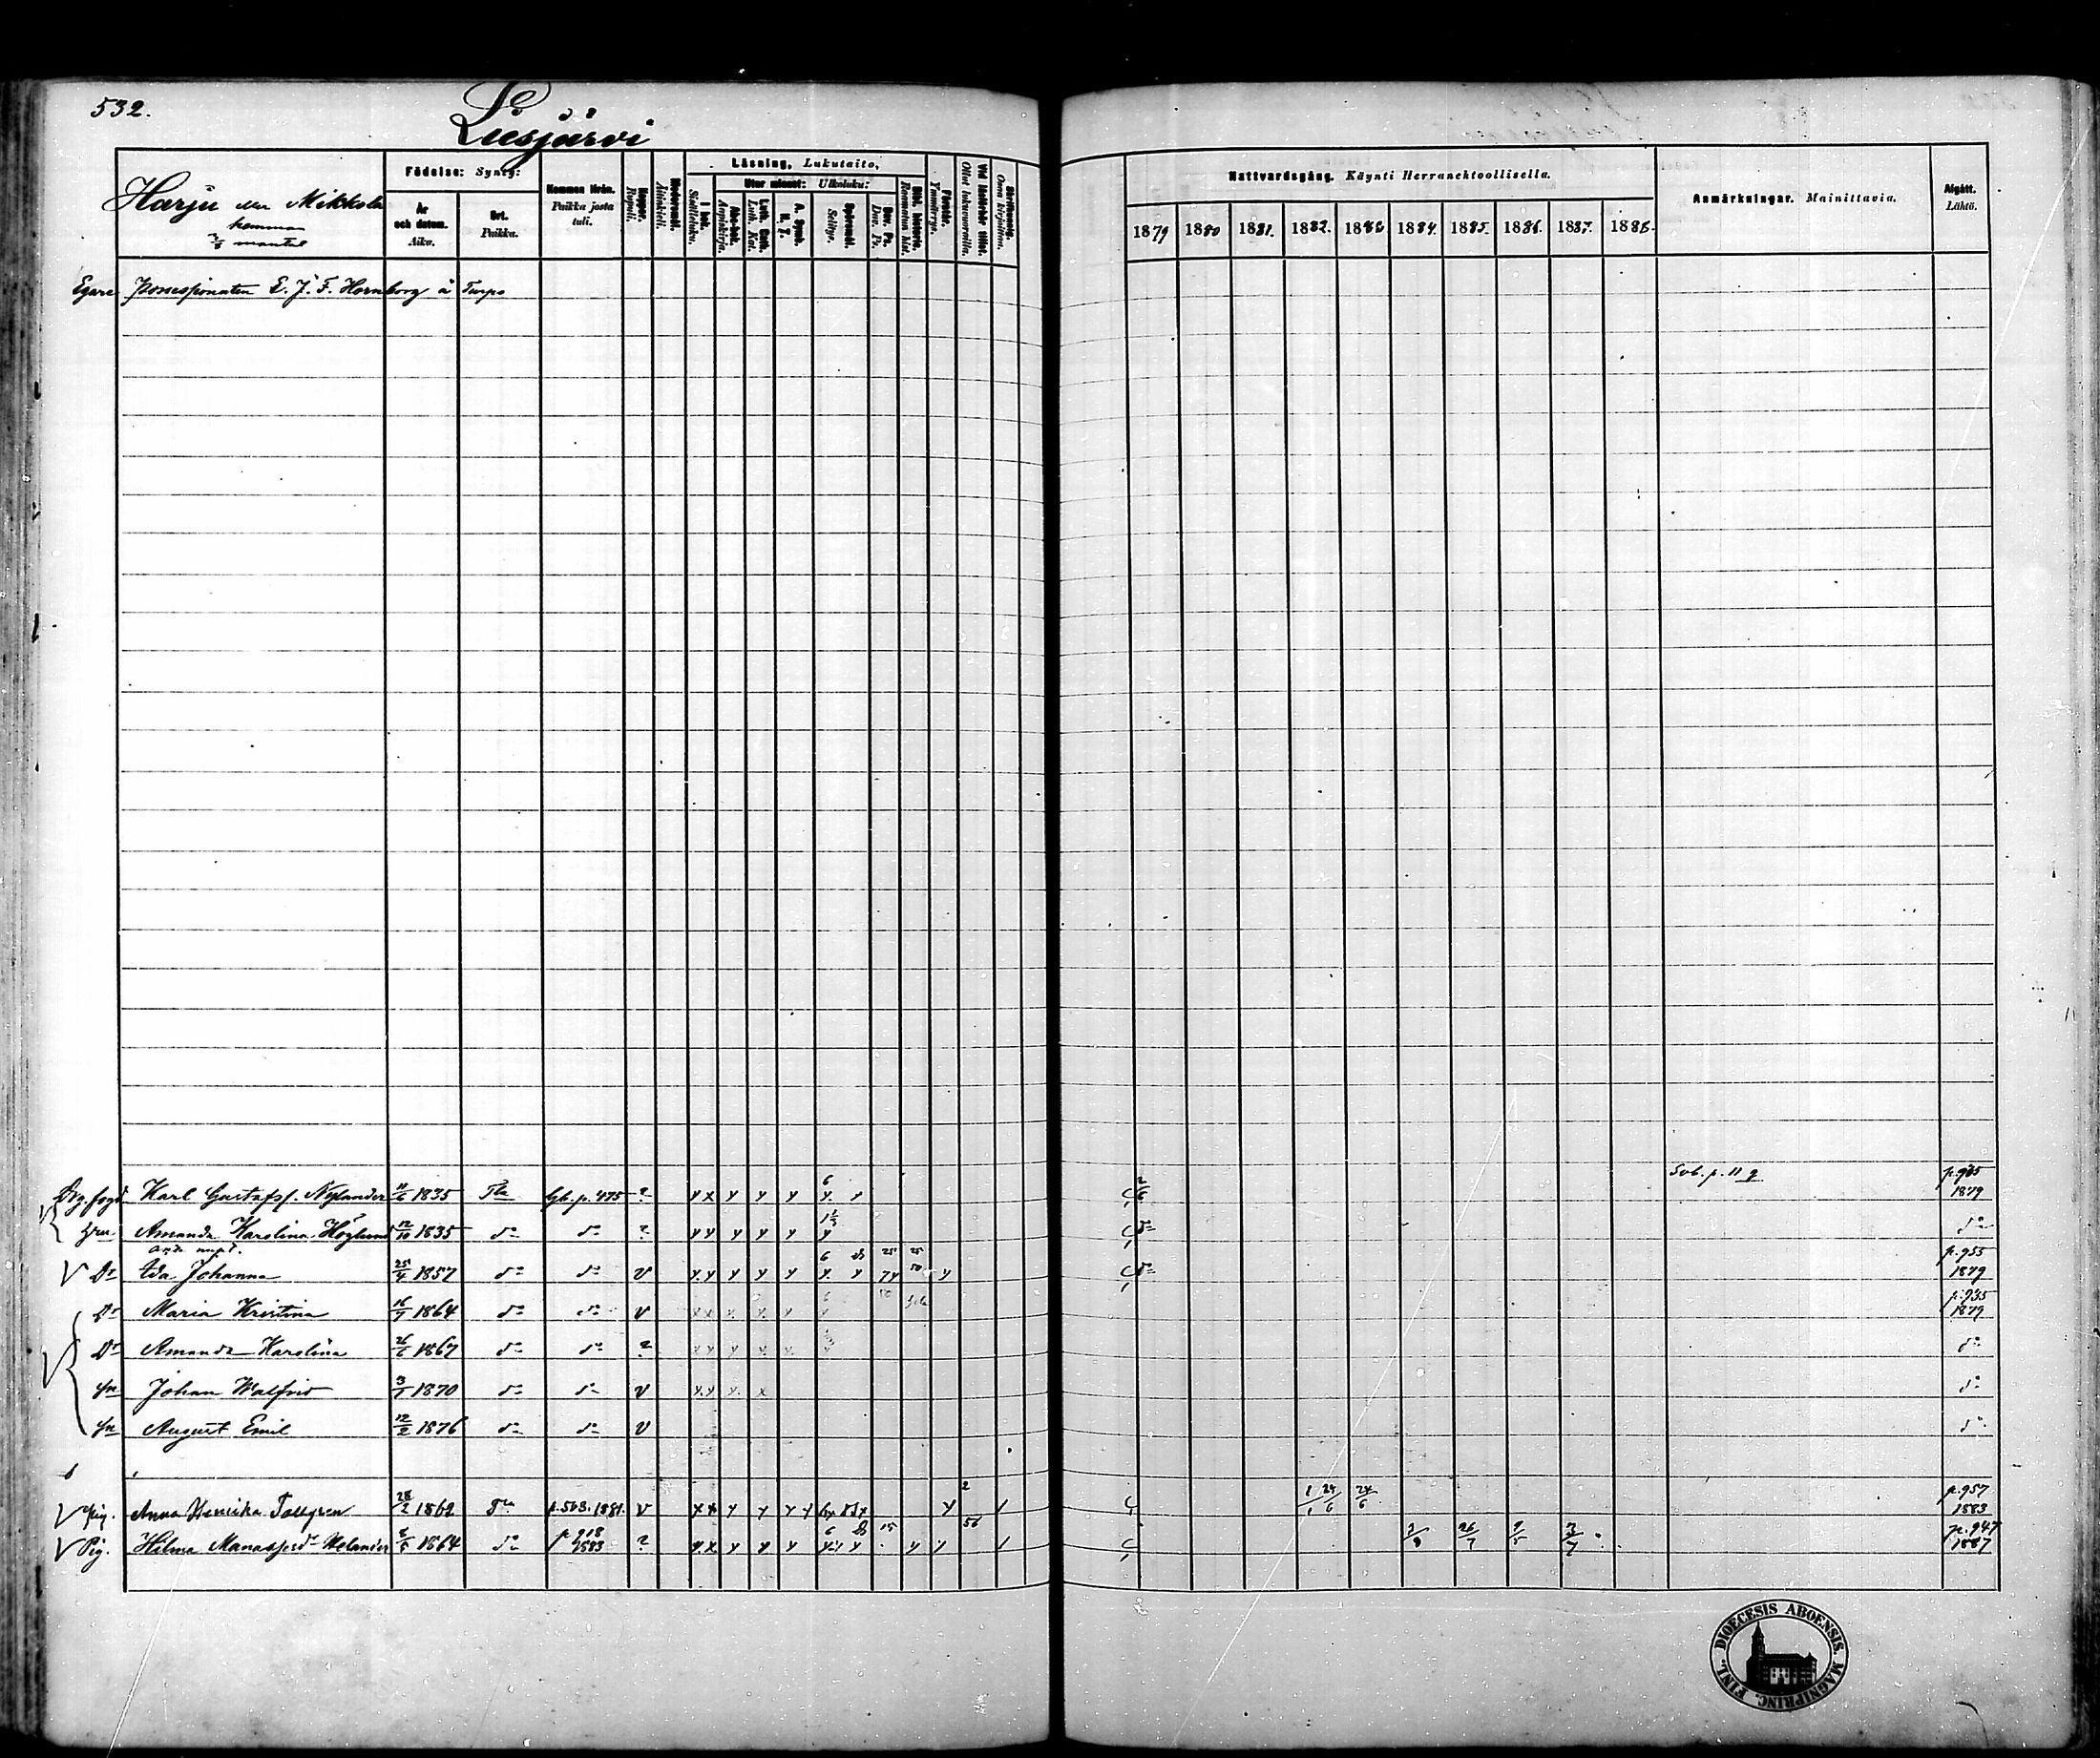 532.
Liesjärvi
Harju eller Mikkola
hemman
mantal
Födelse: Synty:
År och datum. Aika.
Ort. Paikka.
Kommen ifrån. Paikka josta tuli.
Koppor. Rupuli.
Modersmål. Äitinkieli.
Läsning, Lukutaito,
I bok. Sisältäluku.
Utur minnet: Ulkoluku:
Abc-bok. Aapiskirja.
Luth. Cath. Luth. Kat.
A. Symb. H. T.
Spörsmål. Selitys.
Dav. Ps. Dav. Ps.
Bibl. historia. Raamatun hist.
Förstår. Ymmärrys.
Vid läsförhör tillst. Ollut lukuvuorolla.
Skrifkunnig. Osaa kirjoittaa.
Nattvardsgång. Käynti Herranehtoollisella.
1879 1880 1881. 1882. 1883 1884. 1885. 1886. 1887. 1888.
Anmärkningar. Mainittavia.
Afgått. Lähtö.
Egare Possessionaten E. J. F. Hornborg å Turpo
Karl Gustafss. Nylander 11/6 1835 Tla p. 475 ? 2/6 p. 935 1879
Amanda Karolina Höglund 12/10 1835 do do ? do do
Dr Ida Johanna 25/4 1857 do do v do p. 955 1879
Dr Maria Kristina 16/7 1864 do do v p. 935 1879
Dr Amanda Karolina 26/6 1867 do do ? do
Sn Johan Walfrid 3/1 1870 do do v do
Sn August Emil 12/2 1876 do do v do
Pig. Anna Henrika Tallgren 28/2 1862 Tla p. 503. 1881. v 1/1 24/6 24/6 p. 957 1883
Pig. Hilma Manassedr Welander 1864 do p. 918 1883 ? 26/7 9/5 3/7 p. 947 1887
FINL. DIOECESIS ABOENSIS MAGNI PRINC.